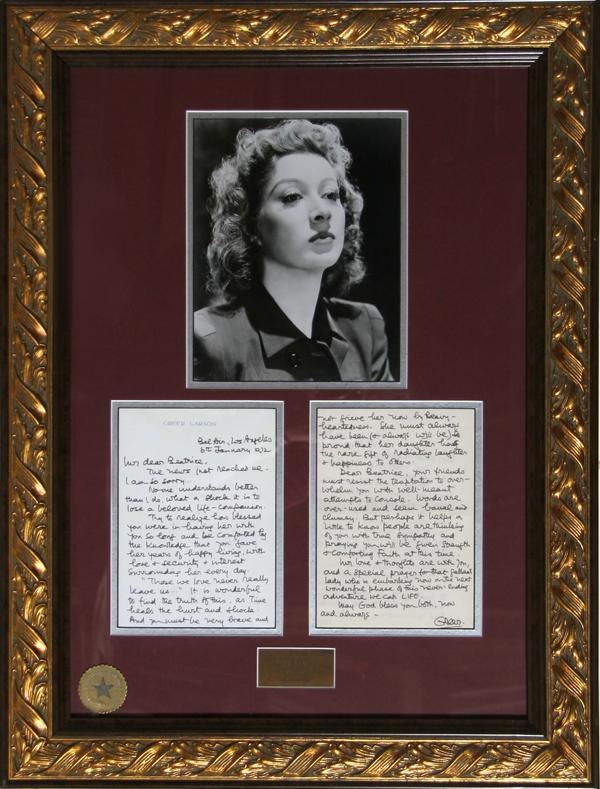 GREER GARSON
Bel Air, Los Angeles
6th January 1972
My dear Beatrice,
The news just reached me -
I am so sorry.
No-one understands better
than I do, what a shock it is to
lose a beloved life-companion.
Try to realize how blessed
you were in having her with
you so long and be comforted by
the knowledge that you gave
her years of happy living, with
love + security + interest
surrounding her every day.
"Those we love never really
leave us.." It is wonderful
to find the truth of this, as Time
heals the hurt and shock.
And you must be very brave and
not grieve her now by heavy-
heartedness. She must always
have been (& always will be) so
proud that her daughter has
the rare gift of radiating laughter
+ happiness to others.
Dear Beatrice, your friends
must resist the temptation to over-
whelm you with well-meant
attempts to console. Words are
over-used and seem banal and
clumsy. But perhaps it helps a
little to know people are thinking
of you with true sympathy and
praying you will be given strength
+ comforting Faith at this time.
My love + thoughts are with you,
and a special prayer for that gallant
lady who is embarking now on the next
wonderful phase of this never-ending
adventure we call LIFE.
May God bless you both, now
and always -
Greer.